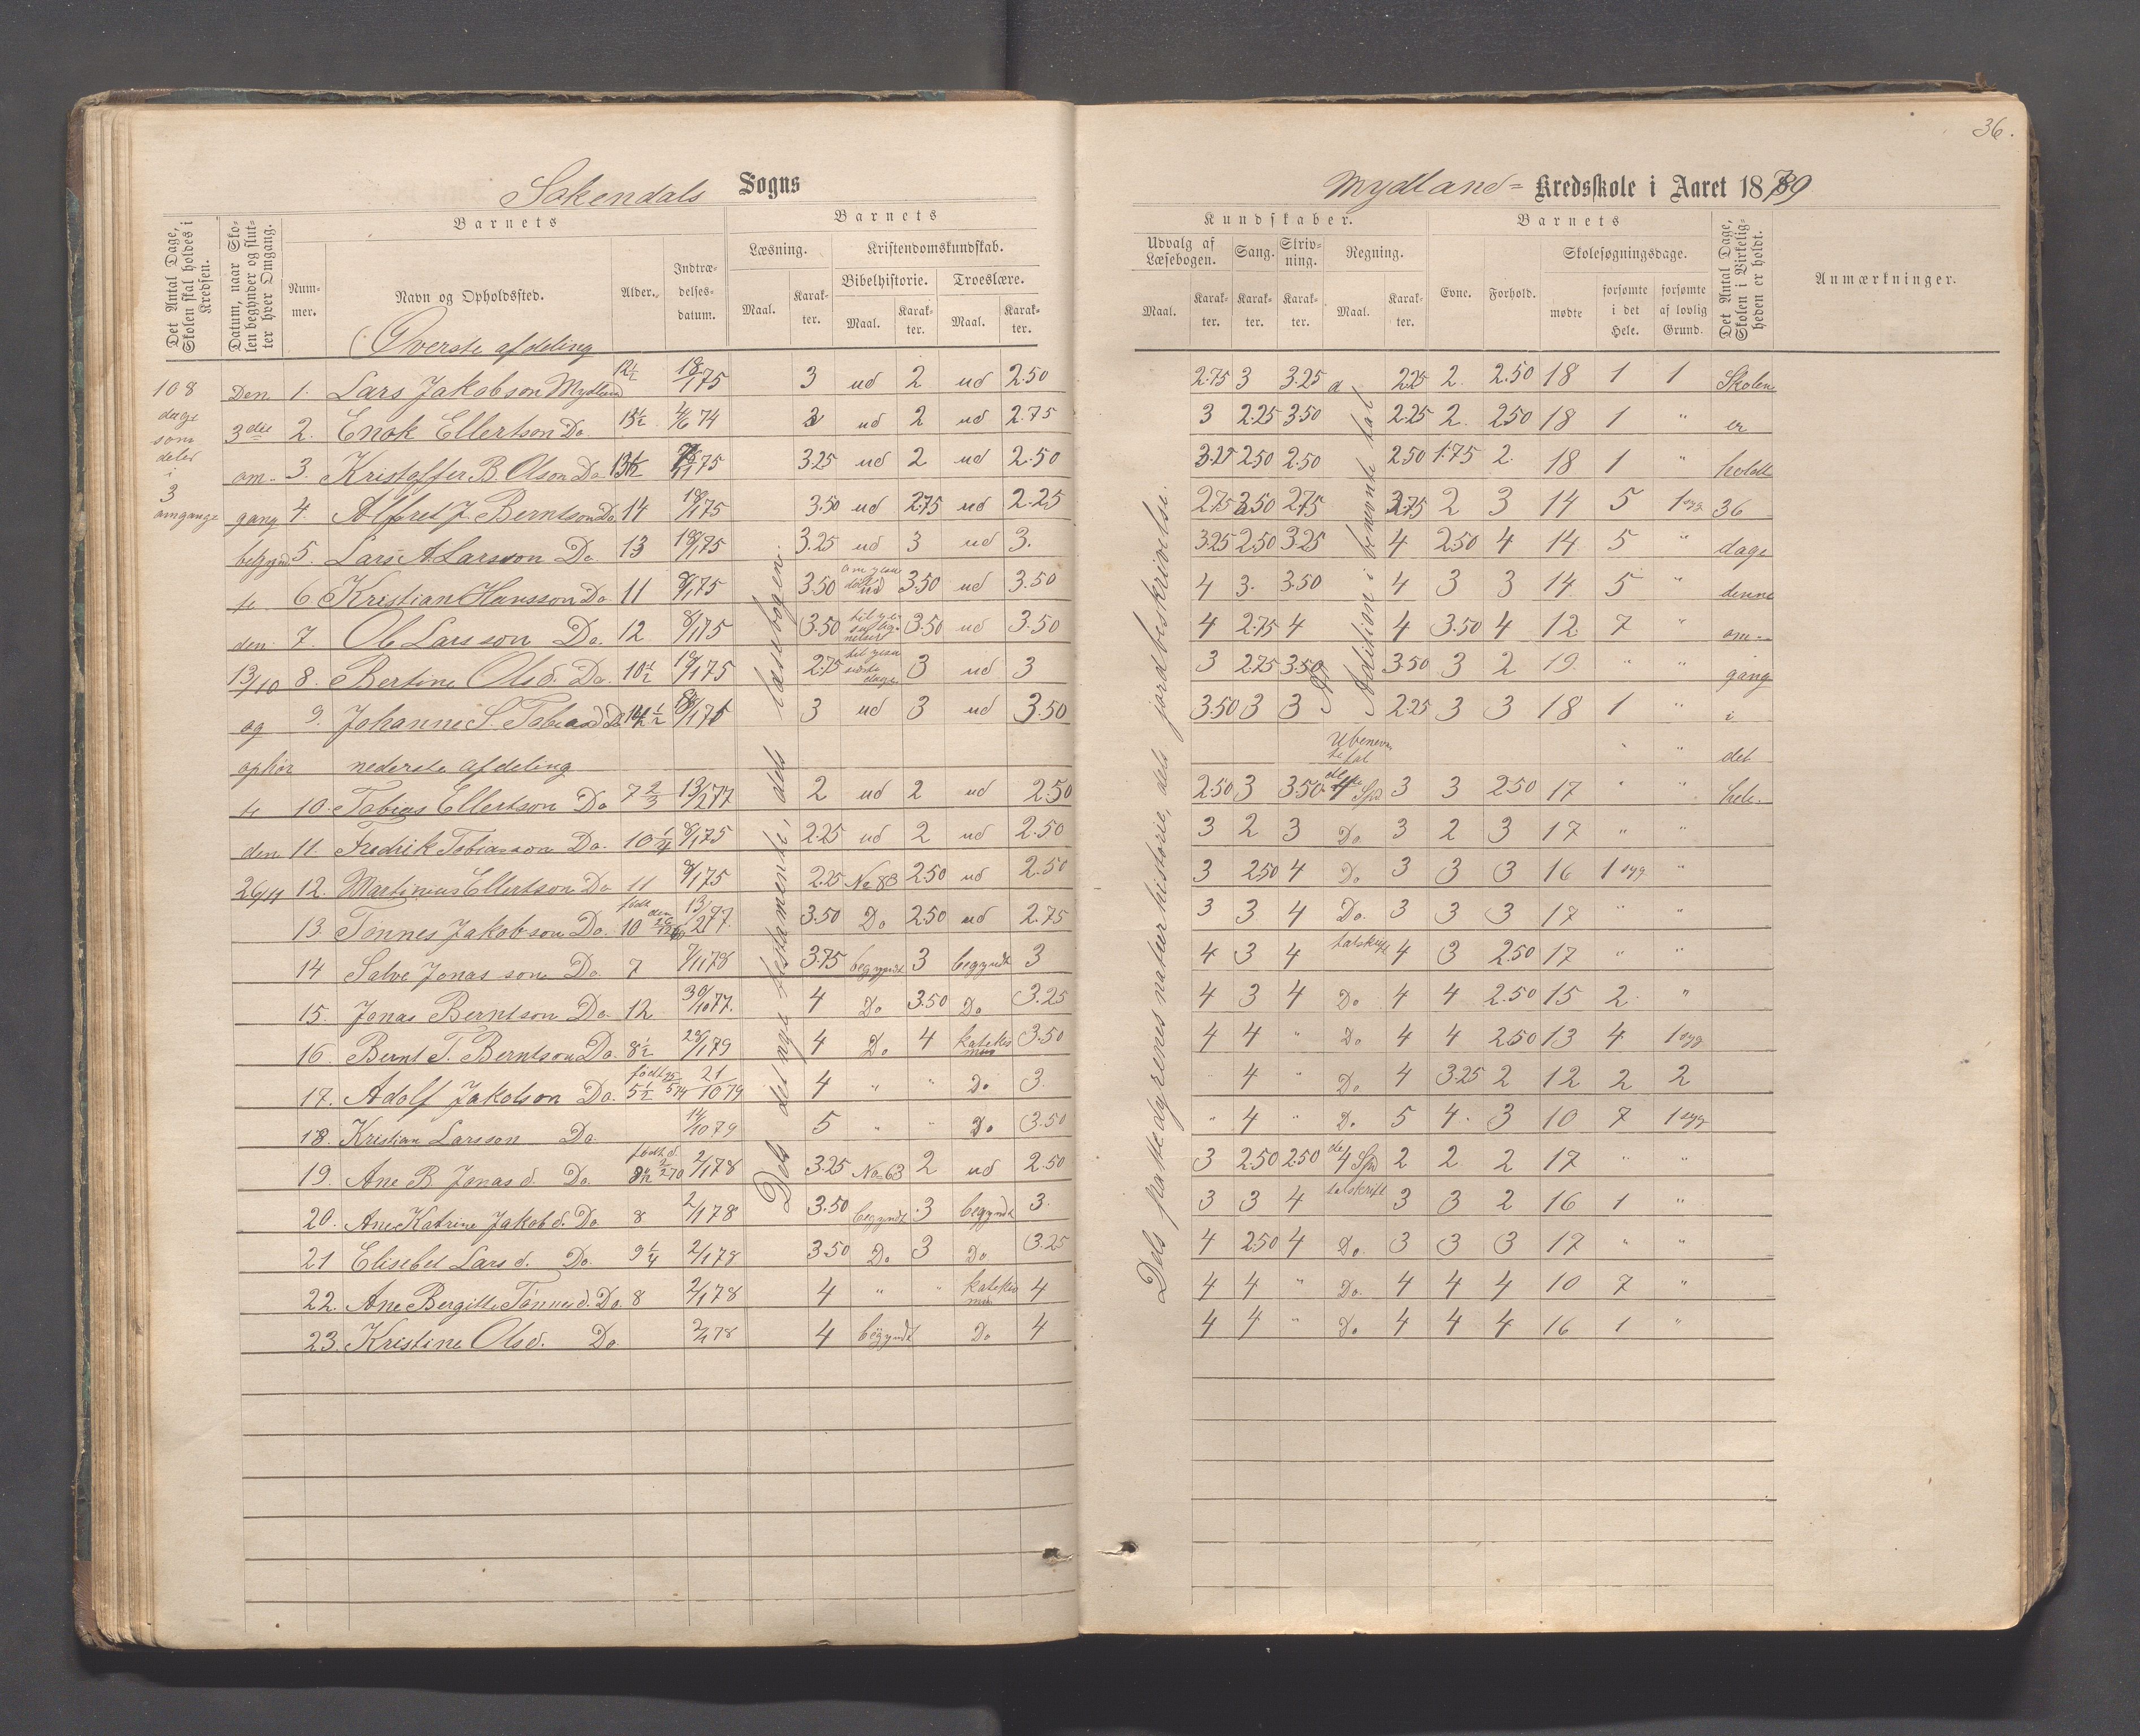 36.
Sokendals Sogns
Mydland= Kredsskole i Aaret 1879
Det Antal Dage, Skolen skal holdes i Kredsen.
Datum, naar Skolen begynder og slutter hver Omgang.
Barnets
Nummer.
Navn og Opholdssted.
Alder.
Indtrædelsesdatum.
Barnets
Læsning.
Maal.
Karakter.
Kristendomskundskab.
Bibelhistorie.
Maal.
Karakter.
Troeslære.
Maal.
Karakter.
Kundskaber.
Udvalg af Læsebogen.
Maal.
Karakter.
Sang.
Karakter.
Skrivning.
Karakter.
Regning.
Maal.
Karakter.
Barnets
Evne.
Forhold.
Skolesøgningsdage.
mødte
forsømte i det Hele.
forsømte af lovlig Grund.
Det Antal Dage, Skolen i Virkeligheden er holdt.
Anmærkninger.
108 dage som deles i 3 omgange
Den 3die omgang begyndte den 13/10 og ophørte den 26/11
Dels det nye testamente, dels læsebogen.
Dels pattedyrenes naturhistorie, dels jordbeskrivelse.
Adition i benevnte tal
Skolen er holdt 36 dage denne omgang i det hele.
Øverste afdeling
1. Lars Jakobson Mydland 12½ 18/1 75 3 ud 2 ud 2.50 2.75 3 3.25 2.25 2. 2.50 18 1 1
2. Enok Ellertson Do 13½ 4/6 74 3 ud 2 ud 2.75 3 2.25 3.50 2.25 2. 2.50 18 1 "
3. Kristoffer B. Olson Do 13½ 75 3.25 ud 2 ud 2.50 3.25 2.50 2.50 2.50 1.75 2. 18 1 "
4. Alfred J Berntson Do 14 18/1 75 3.50 ud 2.75 ud 2.25 2.75 3.50 2.75 3.75 2 3 14 5 1 syg
5. Lars A. Larsson Do 13 18/1 75 3.25 ud 3 ud 3. 3.25 2.50 3.25 4 2.50 4 14 5 "
6 Kristian Hansson Do 11 8/1 75 3.50 ud 3.50 ud 3.50 4 3. 3.50 4 3 3 14 5 "
7. Ole Larsson Do. 12 8/1 75 3.50 3.50 ud 3.50 4 2.75 4 4 3.50 4 12 7 "
8. Bertine Olsd. Do. 10½ 18/1 75 2.75 3 ud 3 3 2.75 3.50 3.50 3 2 19 " "
9. Johanne S. Tobiasd Do 14½ 18/1 75 3 ud 3 ud 3.50 3.50 3 3 2.25 3 3 18 1 "
nederste afdeling Ubenevnte tal
10. Tobias Ellertson Do 7⅔ 13/2 77 2 ud 2 ud 2.50 2.50 3 3.50 de 4 Spd 3 3 2.50 17 " "
11. Fredrik Tobiasson Do. 10¼ 8/1 75 2.25 ud 2 ud 2.50 3 2 3 Do 3 2 3 17 " "
12. Martinius Ellertson Do 11 8/1 75 2.25 No 83 2.50 ud 2.50 3 2.50 4 Do 3 3 3 16 1 syg "
13. Tønnes Jakobson Do. 10 født den 13/2 77. 3.50 Do 2.50 ud 2.75 3 3 4 Do. 3 3 3 17 " "
14 Salve Jonasson Do 7 7/1 78 3.75 begyndt 3 begyndt 3 4 3 4 talskrift 4 3 2.50 17 " "
15. Jonas Berntson Do. 12 30/10 77. 4 Do 3.50 Do 3.25 4 3 4 Do 4 4 2.50 15 2. "
16. Bernt T. Berntson Do. 8½ 28/1 79 4 Do 4 katekismus 3.50 4 4 " Do 4 4 2.50 13 4 1 syg
17. Adolf Jakobson Do. 5½ født 25/5 74 21/10 79 4 " " Do 3. " 4 " Do 4 3.25 2 12 2 2
18. Kristian Larsson Do 14/10 79 5 " " Do 3.50 " 4 " Do 5 4. 3 10 7 1 syg
19. Ane B Jonasd. Do. født d. 2/1 78 3.25 No 63 2 ud 2.50 3 2.50 2.50 de 4 Spd 2 2 2 17 " "
20. Ane Katrine Jakobd. Do 8 2/1 78 3.50 begyndt 3 begyndt 3. 3 3 4 talskrift 3 3 2 16 1 "
21 Elisebet Larsd. Do. 9¼ 2/1 78 3.50 Do 3 Do 3.25 4 2.50 4 Do. 3 3 3 17 " "
22. Ane Bergitte Tønnesd. Do. 8 2/1 78 4 " " katekismus 4 4 4 " Do. 4 4 4 10 7 "
23. Kristine Olsd. Do. 2/1 78 4 begyndt Do 4 4 4 " Do 4 4 4 16 1 "